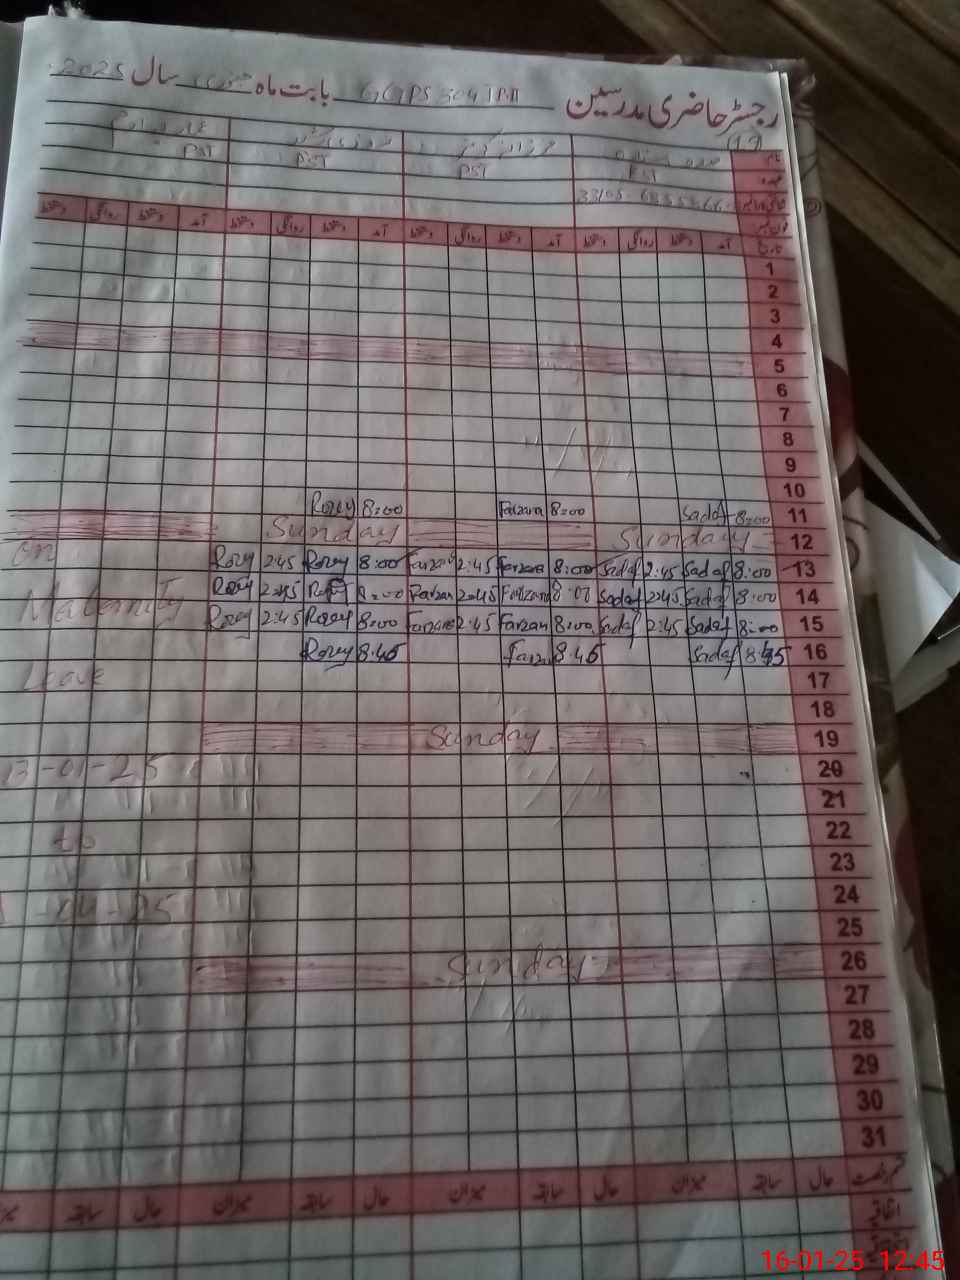 رجسٹر حاضری مدرسین GGPS 304 بابت ماہ جنوری سال 2025
(19)
نام
عہدہ PST PST PST PST
فون نمبر
تاریخ آمد دستخط روانگی دستخط آمد دستخط روانگی دستخط آمد دستخط روانگی دستخط آمد دستخط روانگی دستخط
1
2
3
4
5
6
7
8
9
10
Rozey 8:00 Farzana 8:00 Sadaf 8:00 11
Sunday Sunday 12
on Rozey 2:45 Rozey 8:00 Farzana 2:45 Farzana 8:00 Sadaf 2:45 Sadaf 8:00 13
Maternity Rozey 2:45 Rozey 8:00 Farzan 2:45 Farzana 8:00 Sadaf 2:45 Sadaf 8:00 14
Rozey 2:45 Rozey 8:00 Farzana 2:45 Farzan 8:00 Sadaf 2:45 Sadaf 8:00 15
Rozey 8:45 Farzan 8:45 Sadaf 8:45 16
Leave 17
18
Sunday 19
13-01-25 20
21
to 22
23
-04-25 24
25
Sunday 26
27
28
29
30
31
قسم رخصت حال سابقہ میزان حال سابقہ میزان حال سابقہ میزان حال سابقہ
اتفاقیہ
16-01-25 12:45